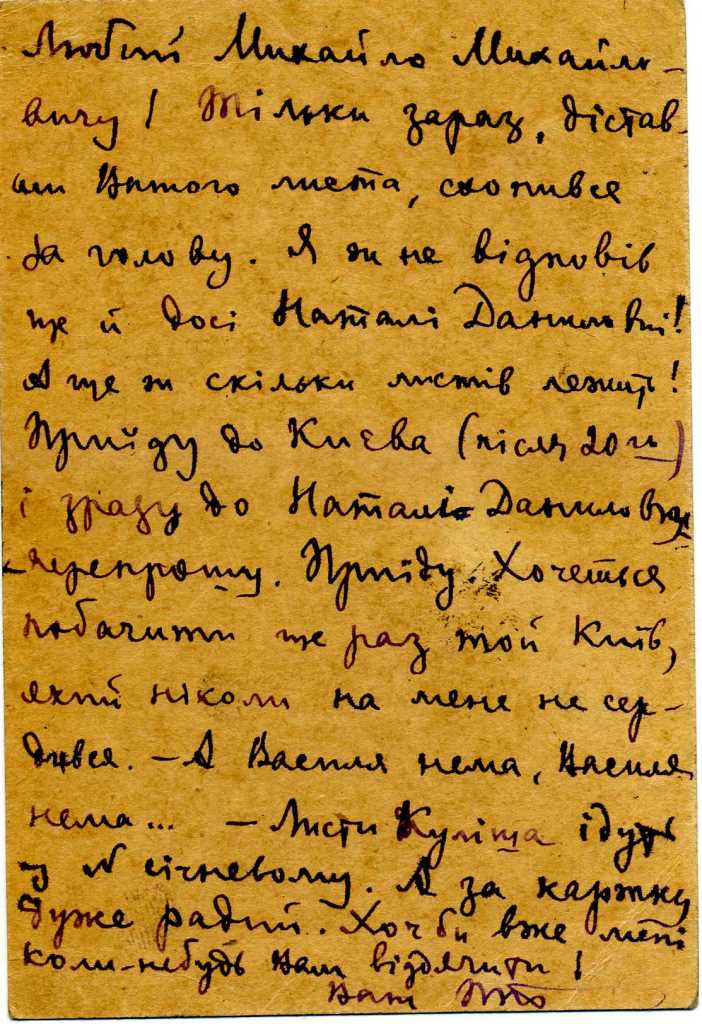 Любий Михайло Михайло-
вичу! Тільки зараз, дістав-
ши Вашого листа, схопився
за голову. Я ж не відповів
ще й досі Наталі Данилівні!
А ще ж скільки листів лежить!
Приїду до Києва (після 20го)
і зразу до Наталі Данилівни
перепрошу. Приїду. Хочеться
побачити ще раз той Київ,
який ніколи на мене не сер-
дився. – А Василя нема, Василя
нема... – Листи Куліша ідуть
у № січневому. А за картку
дуже радий. Хоч би вже мені
коли-небудь Вам віддячити!
Ваш